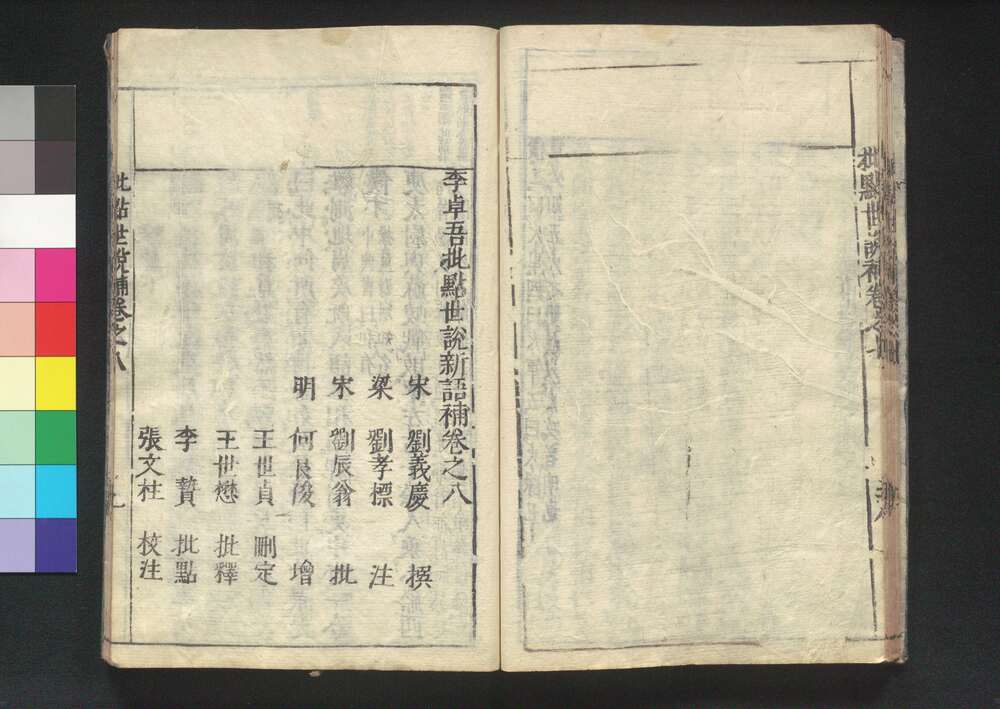 批點世說補卷之七
李卓吾批點世說新語補卷之八
宋 劉義慶 撰
梁 劉孝標 注
宋 劉辰翁 批
明 何良俊 增
王世貞 刪定
王世懋 批釋
李贄 批點
張文柱 校注
批點世說補卷之八